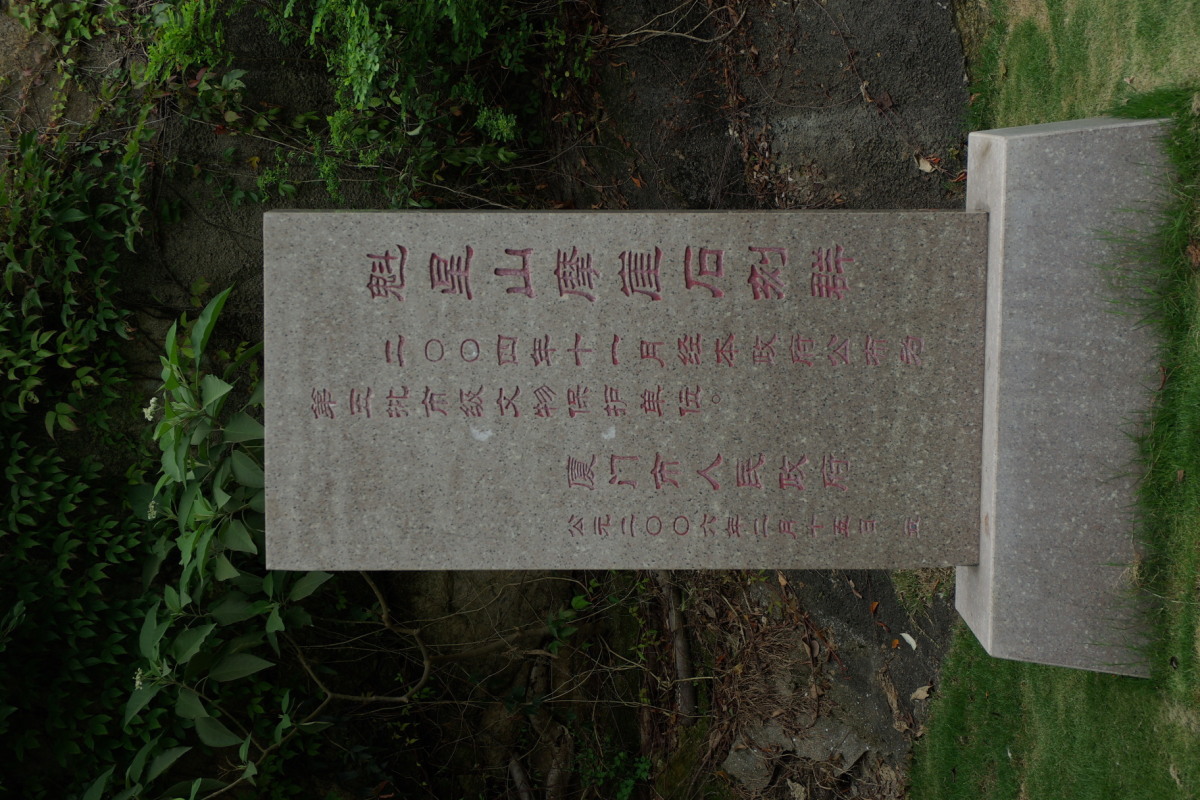 魁星山摩崖石刻群
二〇〇四年十一月经本政府公布为
第三批市级文物保护单位。
厦门市人民政府
公元二〇〇六年二月十五日 立